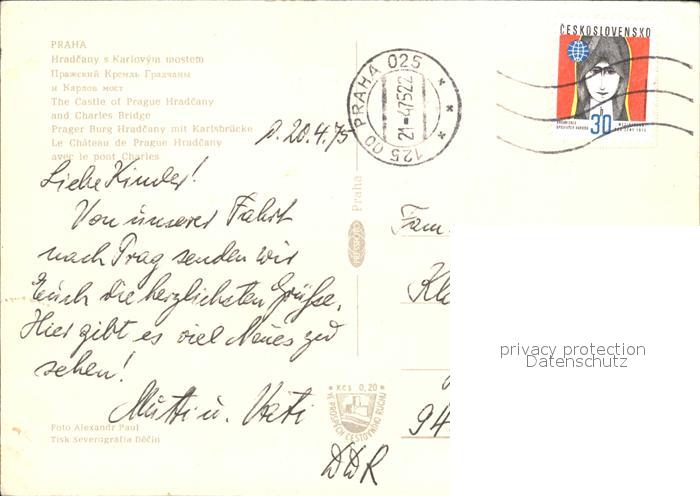 PRAHA
Hradčany s Karlovým mostem
Пражский Кремль Градчаны
и Карлов мост
The Castle of Prague Hradčany
and Charles Bridge
Prager Burg Hradčany mit Karlsbrücke
Le Château de Prague Hradčany
avec le pont Charles
20.4.75
Liebe Kinder!
Von unserer Fahrt
nach Prag senden wir
Euch die herzlichsten Grüße.
Hier gibt es viel Neues zu
sehen!
Mutti u. Vati
Foto Alexandr Paul
Tisk Severografia Děčín
Praha
PRESSFOTO
125 00 PRAHA 025
21.-4.75 22
ČESKOSLOVENSKO
30
Fam.
Kl
94
DDR
KČS 0,20
VE PROSPĚCH CESTOVNÍHO RUCHU
privacy protection
Datenschutz